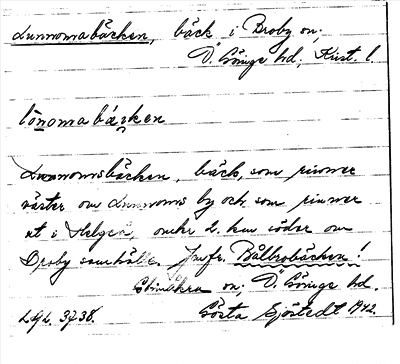 Lunnomabäcken, bäck i Broby sn;
Ö. Göinge hd, Krist. l.
lönomabäkken
Lunnomsbäcken, bäck, som rinner
väster om Lunnoms by och som rinner
ut i Helgeå, omkr 2. km söder om
Broby samhälle. Jmfr. Bålbrobäcken!
sn; Ö. Göinge hd.
Gösta Sjöstedt 1942.